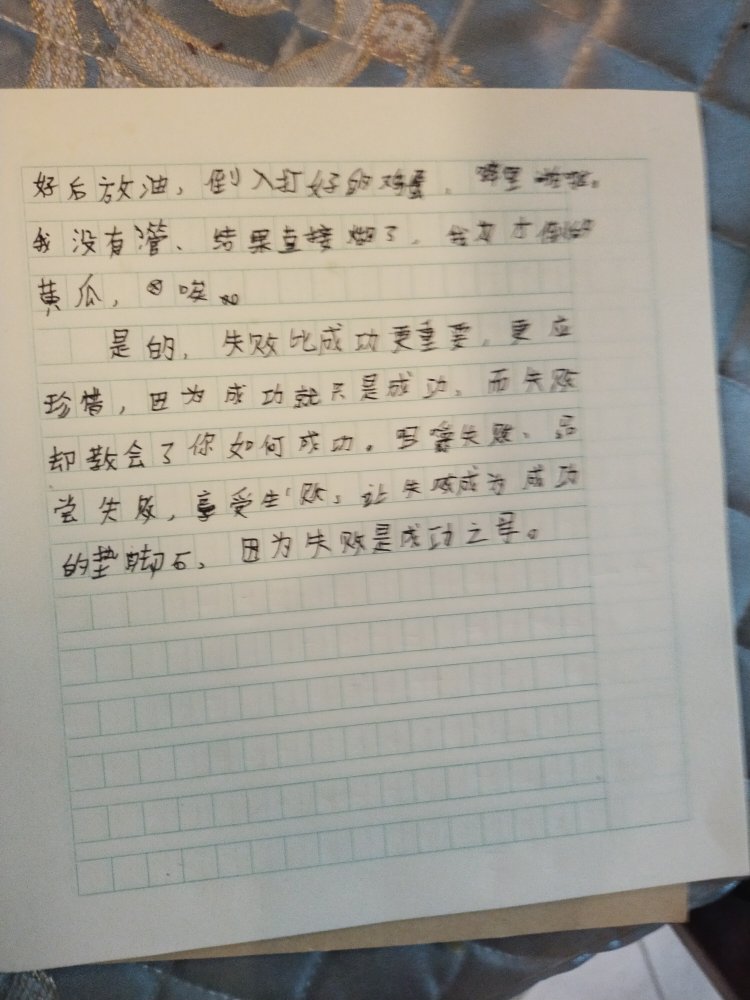 好后放油，倒入打好的鸡蛋，噼里啪啦。
我没有管、结果直接糊了，我有
黄瓜，唉。
是的，失败比成功更重要，更应
珍惜，因为成功就只是成功，而失败
却教会了你如何成功。咀嚼失败、品
尝失败，享受失败，让失败成为成功
的垫脚石、因为失败是成功之母。